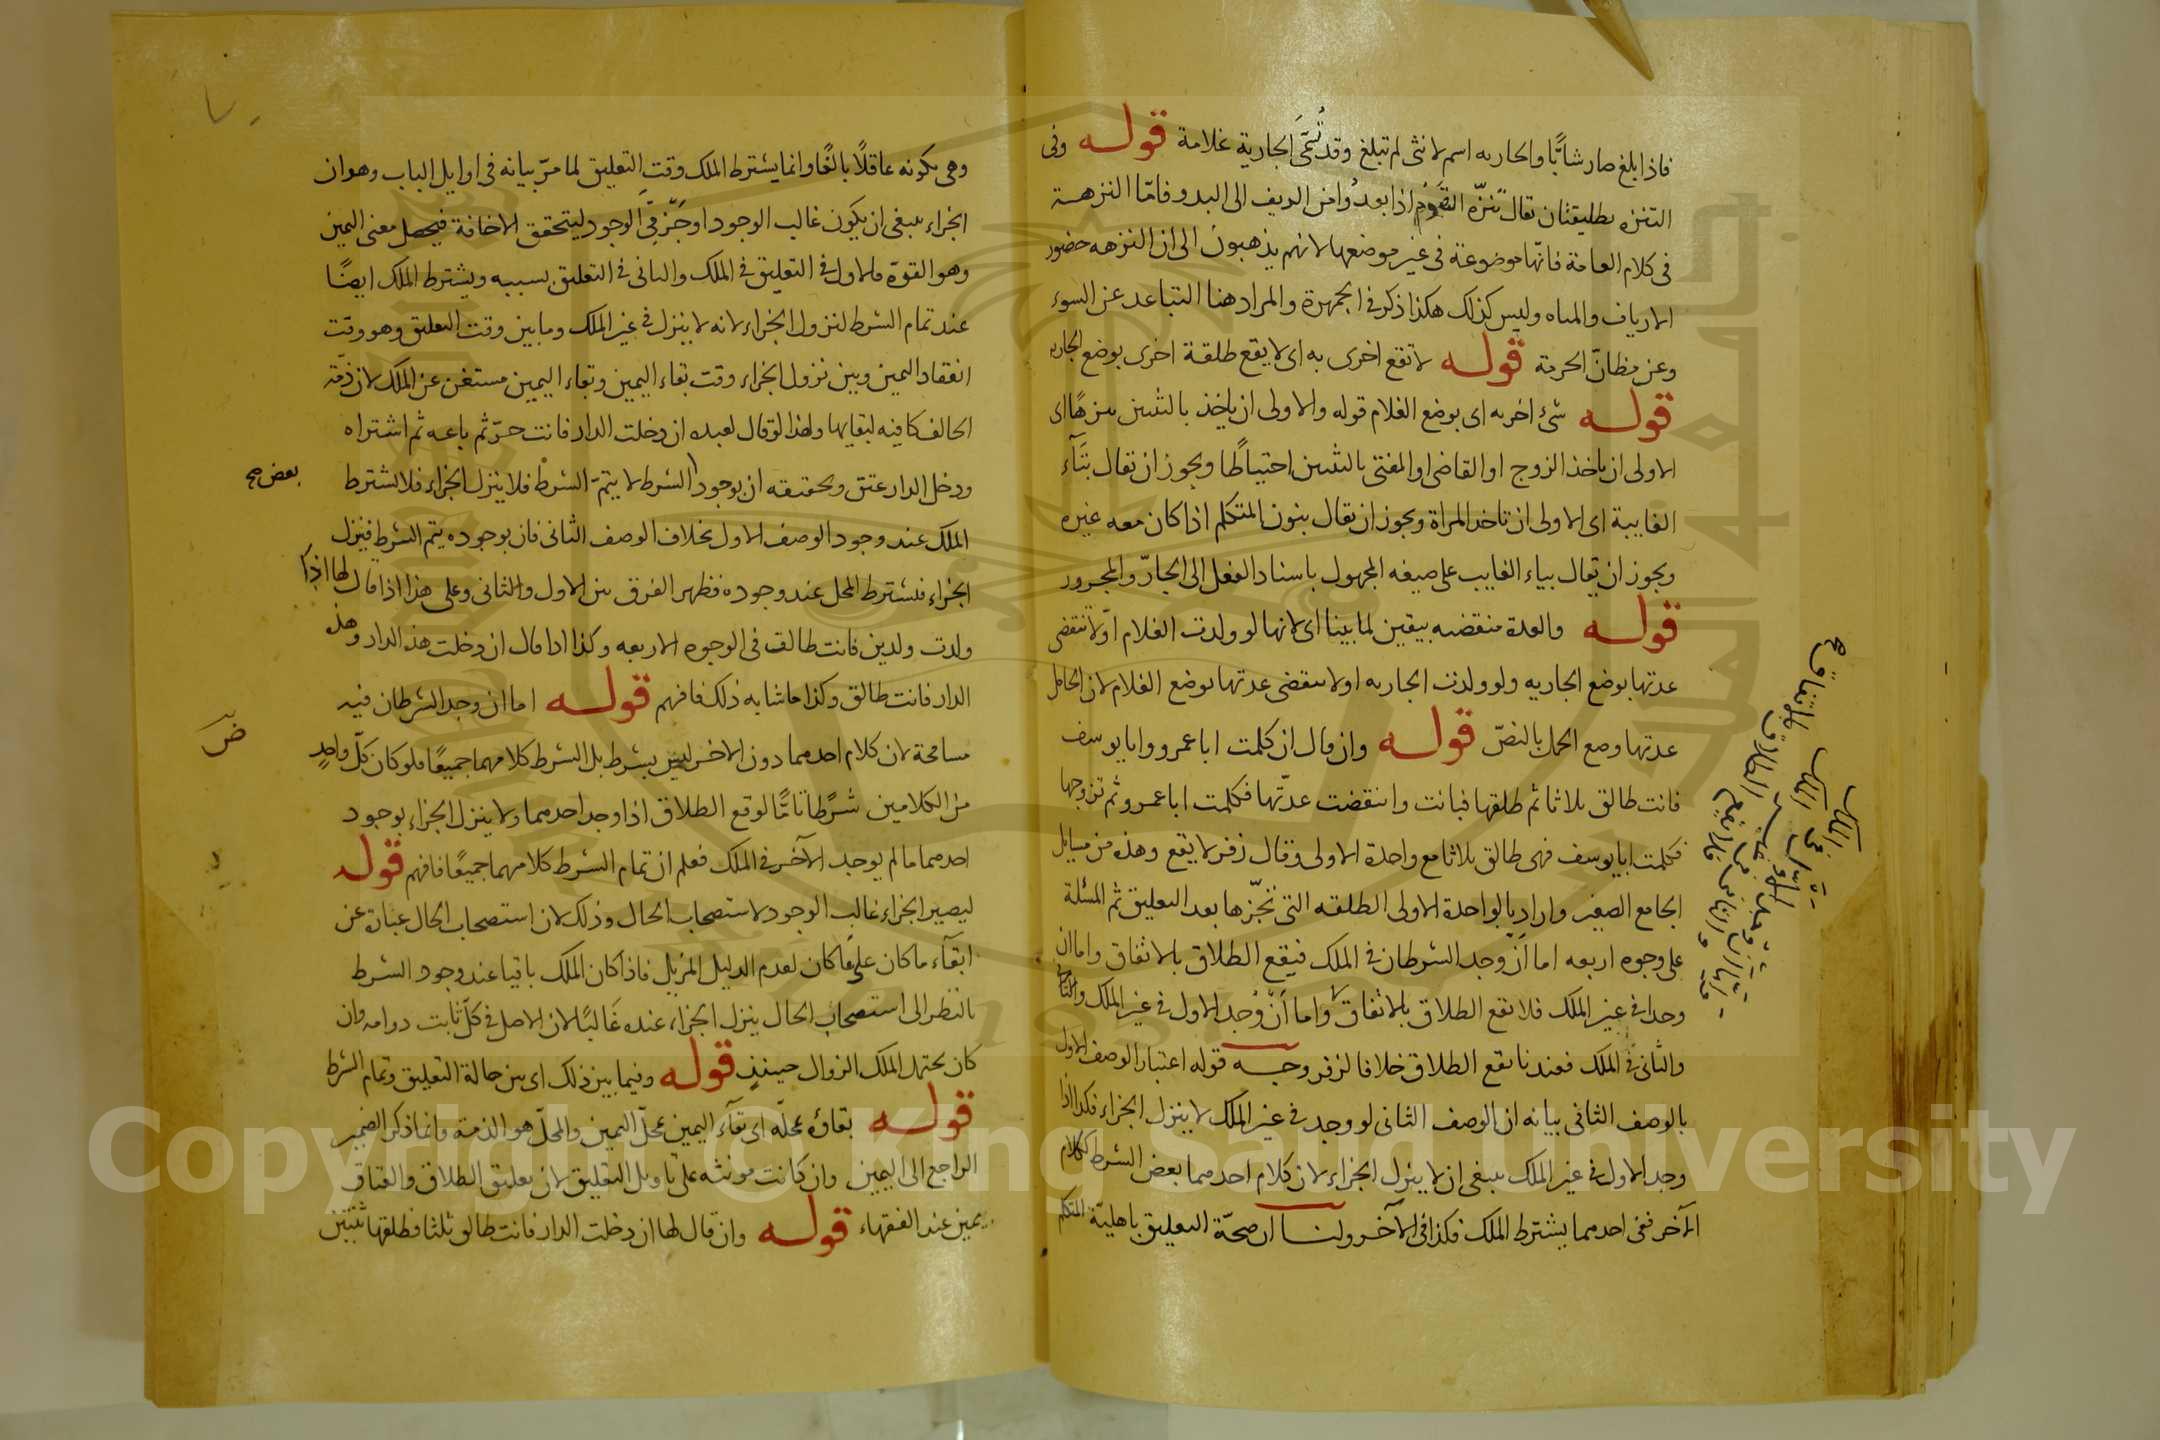 فاذا بلغ صار شابًّا والجاريه اسم لانثى لم تبلغ وقد تُسَمَّى الجارية غلامة قوله وفى
التنزه تطليقتان يقال تَنَزّه القَوْمُ اذا بعدُوا من الريف الى البدو فامّا النزهة
فى كلام العامة فانّها موضوعة فى غير موضعها لانهم يذهبون الى ان النزهه حضور
الارياف والمياه وليس كذلك هكذا ذكر فى الجمهرة والمراد هنا التباعد عن السوء
وعن مظانّ الحرمة قوله لا تقع اخرى به اى لا يقع طلقة اخرى بوضع الجاريه
قوله شئ اخر به اى بوضع الغلام قوله والاولى ان ياخذ بالثنتين تنزهًا اى
الاولى ان ياخذ الزوج او القاضى او المفتى بالثنتين احتياطًا ويجوز ان تقال بتَآء
الغايبة اى الاولى ان تاخذ المراة ويجوز ان تقال بنون المتكلم اذا كان معه غيره
ويجوز ان يقال بياء الغايب على صيغه المجهول باسناد الفعل الى الجارّ والمجرور
قوله والعدة منقضيه بيقين لما بينا اى لانها لو ولدت الغلام اوّلا تنقضى
عدتها بوضع الجاريه ولو ولدت الجاريه اولا تنقضى عدتها بوضع الغلام لان الحامل
عدتها وضع الحمل بالنصّ قوله وان قال ان كلمت ابا عمرو وابا يوسف
فانت طالق ثلاثا ثم طلقها فبانت وانقضت عدّتها فكلمت ابا عمرو ثم تزوجها
فكلمت ابا يوسف فهى طالق ثلاثا مع واحدة الاولى وقال زفر لا يقع وهذه من مسايل
الجامع الصغير واراد بالواحدة الاولى الطلقه التى نجّزها بعد التعليق ثم المسئلة
على وجوه اربعه اما اَنْ وجد الشرطان فى الملك فيقع الطلاق بالاتفاق واما ان
وجدا فى غير الملك فلا يقع الطلاق بالاتفاق واما اَنْ وُجد الاول فى غير الملك
والثانى فى الملك فعندنا يقع الطلاق خلافا لزفر وجه قوله اعتبار الوصف الاول
بالوصف الثانى بيانه ان الوصف الثانى لو وجد فى غير الملك لا ينزل الجزاء فكذا اذا
وجد الاول فى غير الملك ينبغى ان لا ينزل الجزاء لان كلام احدهما بعض الشرط ككلام
الآخر ففى احدهما يشترط الملك فكذا فى الآخر ولنا ان صحّة التعليق باهليّة المتكلم
وهى بكونه عاقلًا بالغًا وانما يشترط الملك وقت التعليق لما مرّ بيانه فى اوايل الباب وهو ان
الجزاء ينبغى ان يكون غالب الوجود او الوجود ليتحقق الاخافة فيحصل معنى اليمين
وهو القوّة فالاول فى التعليق فى الملك والثانى فى التعليق بسببه ويشترط الملك ايضًا
عند تمام الشرط لنزول الجزاء لانه لا ينزل فى غير الملك وما بين وقت التعليق وهو وقت
انعقاد اليمين وبين نزول الجزاء وقت بقاء اليمين وبقاء اليمين مستغن عن الملك لان ذمّة
الحالف كافيه لبقايها ولهذا لو قال لعبده ان دخلت الدار فانت حرّ ثم باعه ثم اشتراه
ودخل الدار عتق وتحقيقه ان بوجود الشرط لا يتمّ الشرط فلا ينزل الجزاء فلا يشترط
بعض صح
الملك عند وجود الوصف الاول بخلاف الوصف الثانى فان بوجوده يتم الشرط فينزل
الجزاء فيشترط المحل عند وجوده فظهر الفرق بين الاول والثانى وعلى هذا اذا قال لها اذا
ولدت ولدين فانت طالق فى الوجوه الاربعه وكذا اذا قال ان دخلت هذه الدار وهذه
الدار فانت طالق وكذا ما شابه ذلك فافهم قوله اما ان وجد الشرطان فيه
مسامحة لان كلام احدهما دون الاخر ليس بشرط بل الشرط كلامهما جميعًا فلو كان كلّ واحدٍ
من الكلامين شرطًا تامًّا لوقع الطلاق اذا وجد احدهما ولا ينزل الجزاء بوجود
احدهما ما لم يوجد الآخر فى الملك فعلم ان تمام الشرط كلامهما جميعًا فافهم قوله
ليصير الجزاء غالب الوجود لاستصحاب الحال وذلك لان استصحاب الحال عبارة عن
ابقآء ما كان على ما كان لعدم الدليل المزيل فاذا كان الملك باقيا عند وجود الشرط
بالنظر الى استصحاب الحال ينزل الجزاء عنده غَالبًا لان الاصل فى كلّ ثابت دوامه وان
كان يحتمل الملك الزوال حينئذٍ قوله وفيما بين ذلك اى بين حالة التعليق وتمام الشرط
قوله بقاؤه بمحلّه اى بقآء اليمين بمحلّ اليمين والمحلّ هو الذمة وانما ذكر الضمير
الراجع الى اليمين وان كانت مونثه على تاويل التعليق لان تعليق الطلاق والعتاق
يمين عند الفقهاء قوله وان قال لها ان دخلت الدار فانت طالق ثلثا فطلقها ثنتين
Copyright © King Saud University
1957